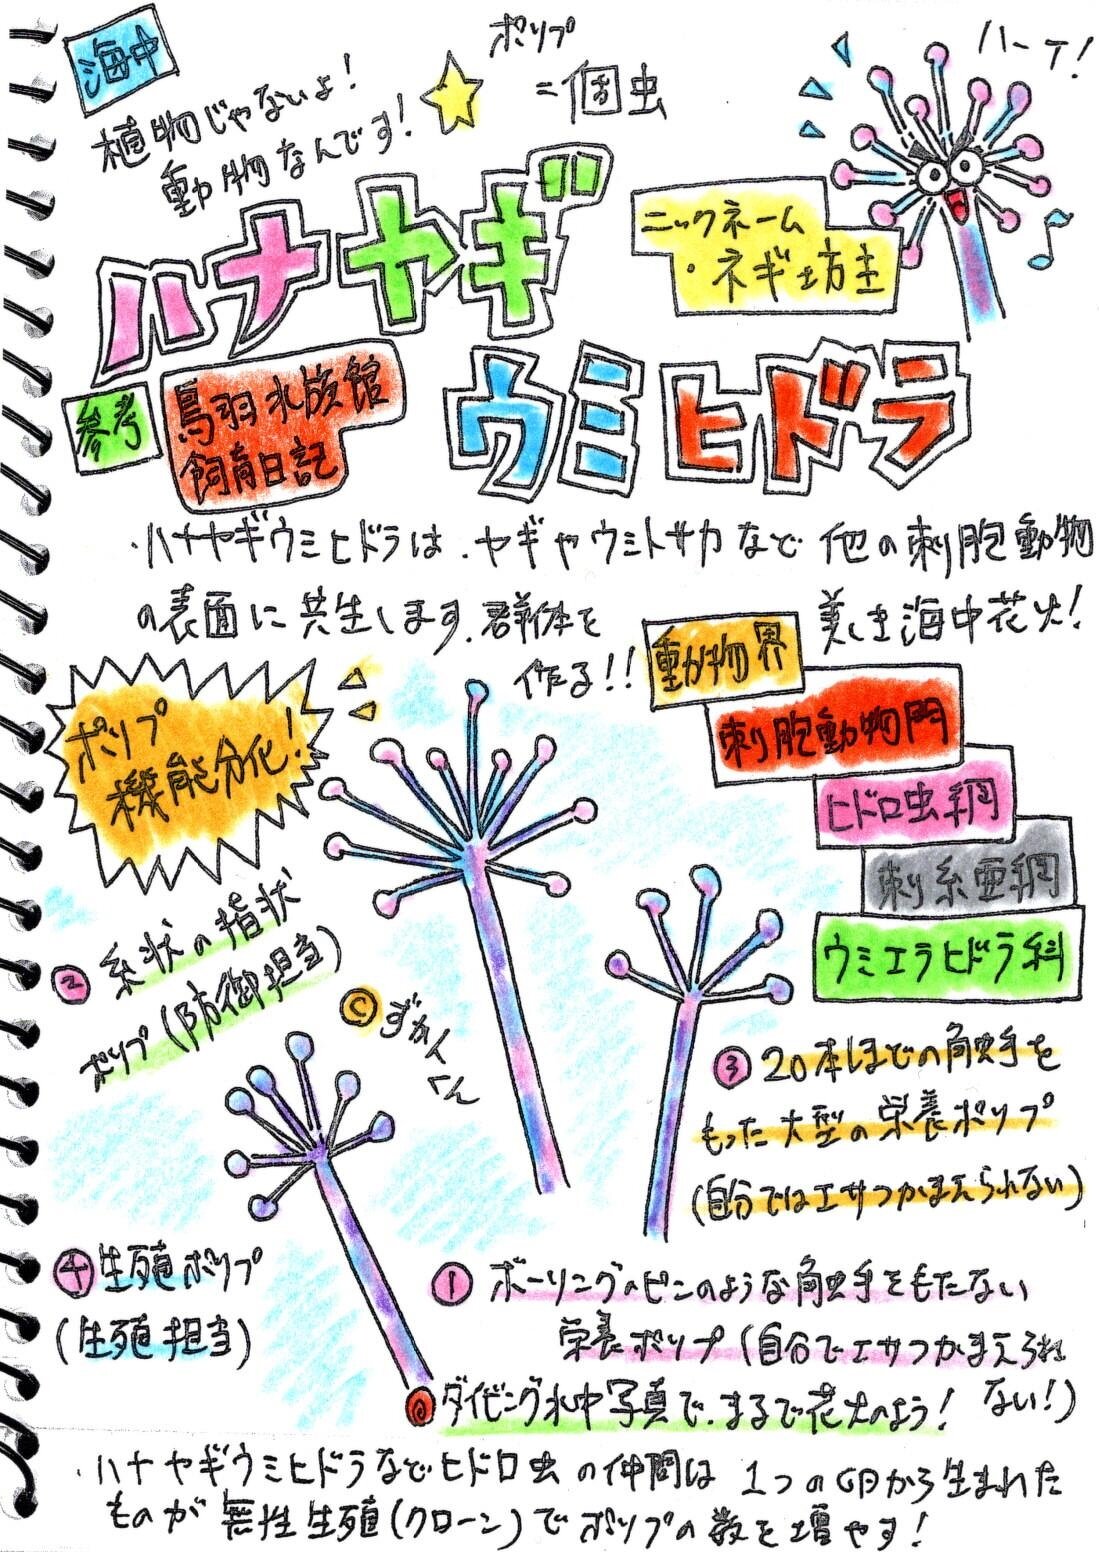 海中
植物じゃないよ!
動物なんです!
ポリプ
=個虫
ハーイ!
ハナヤギ
ウミヒドラ
ニックネーム
・ネギ坊主
参考
鳥羽水族館
飼育日記
・ハナヤギウミヒドラは、ヤギやウミトサカなど他の刺胞動物
の表面に共生します。群体を
作る!!
美しき海中花火!
動物界
刺胞動物門
ヒドロ虫綱
刺糸亜綱
ウミエラヒドラ科
ポリプ
機能分化!
② 糸状の指状
ポリプ(防御担当)
©ずかんくん
③ 20本ほどの触手を
もった大型の栄養ポリプ
(自分ではエサつかまえられない)
④生殖ポリプ
(生殖担当)
① ボーリングのピンのような触手をもたない
栄養ポリプ(自分でエサつかまえられ
ない!)
ダイビング水中写真で、まるで花火のよう!
・ハナヤギウミヒドラなどヒドロ虫の仲間は1つの卵から生まれた
ものが無性生殖(クローン)でポリプの数を増やす!